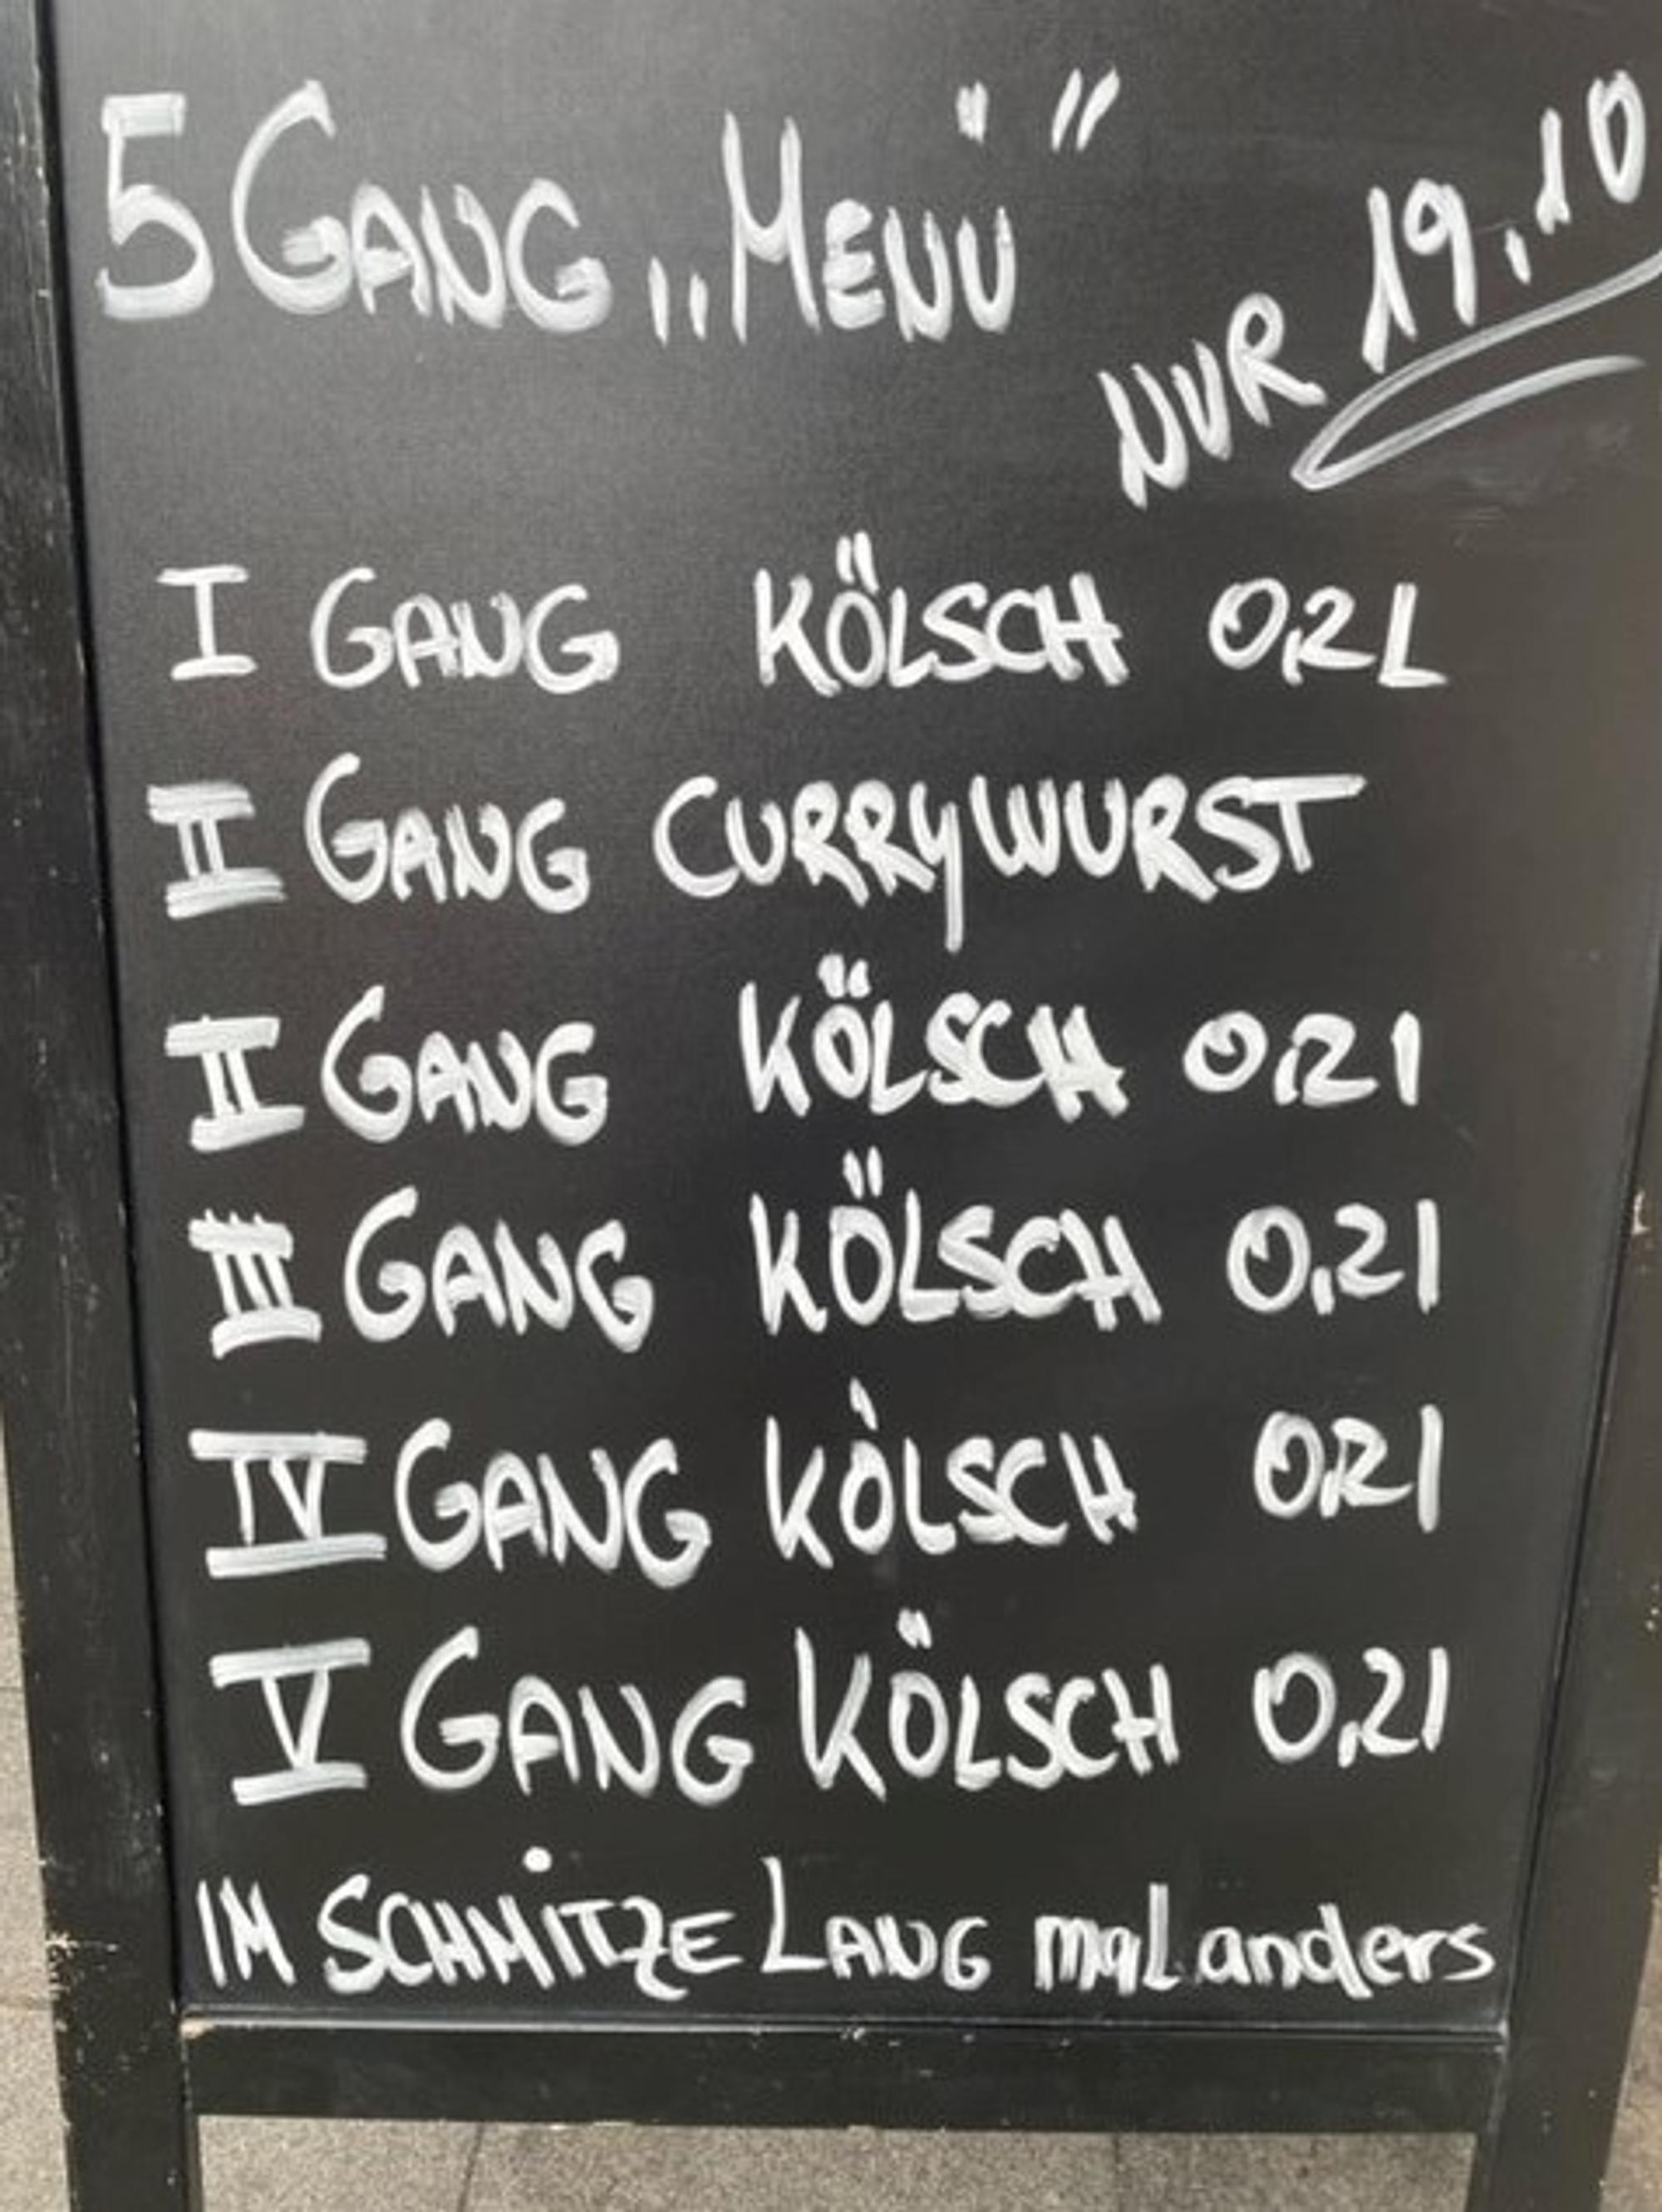 5 GANG „MENÜ"
NUR 19,10
I GANG KÖLSCH 0,2L
II GANG CURRYWURST
II GANG KÖLSCH 0,2l
III GANG KÖLSCH 0,2l
IV GANG KÖLSCH 0,2l
V GANG KÖLSCH 0,2l
IM SCHMITZE LANG mal anders